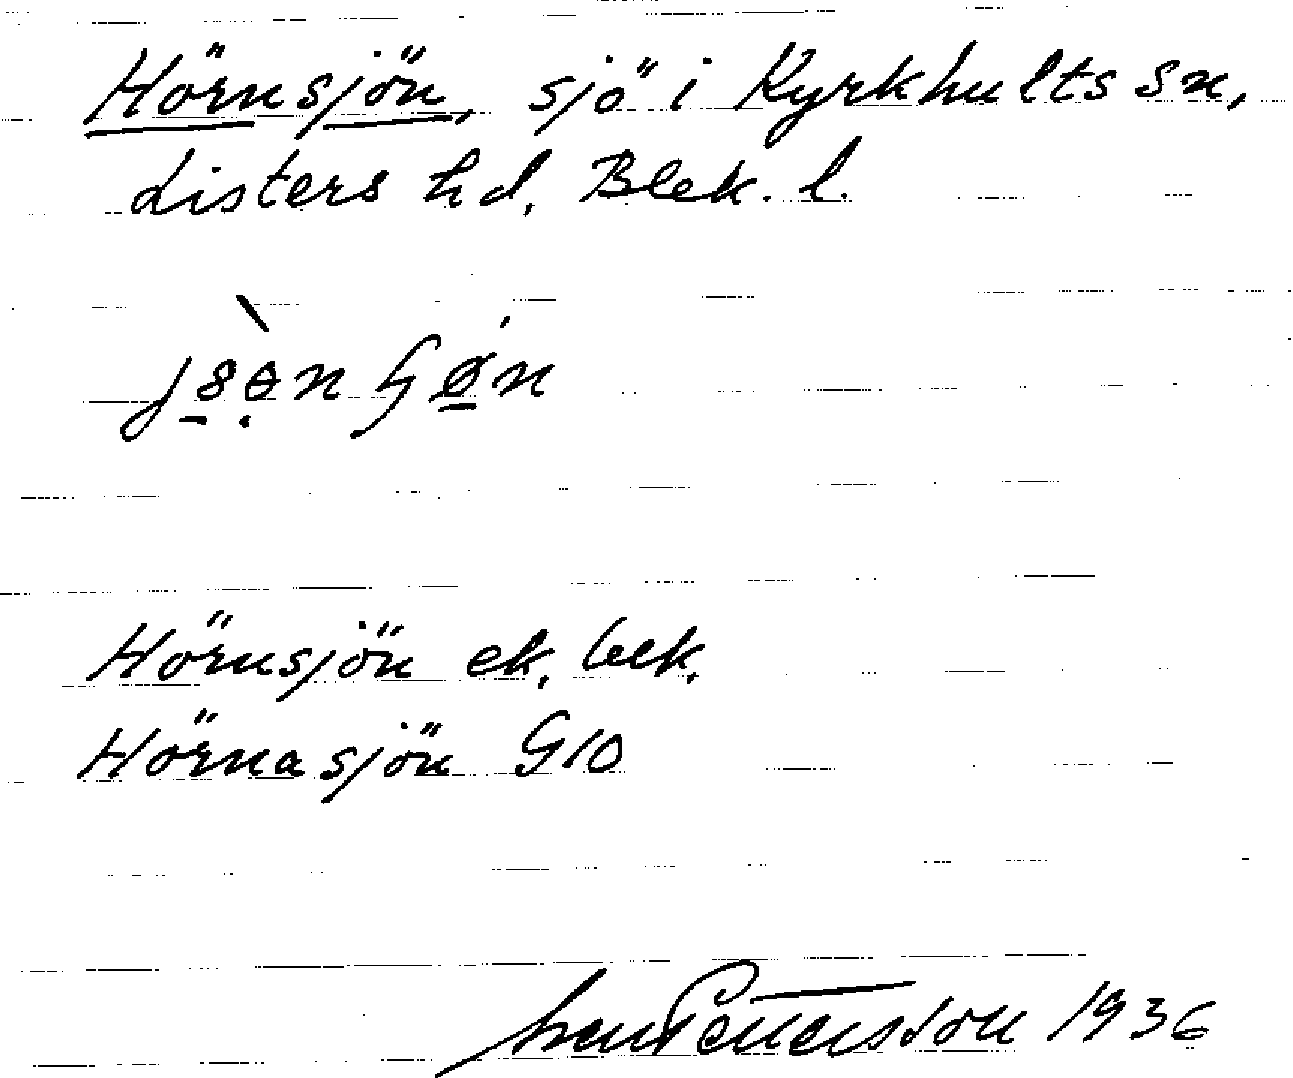 Hörnsjön, sjö i Kyrkhults sn,
Listers hd, Blek. l.
Hörnsjön ek. bek.
Hörnasjön G10
Pettersson 1936